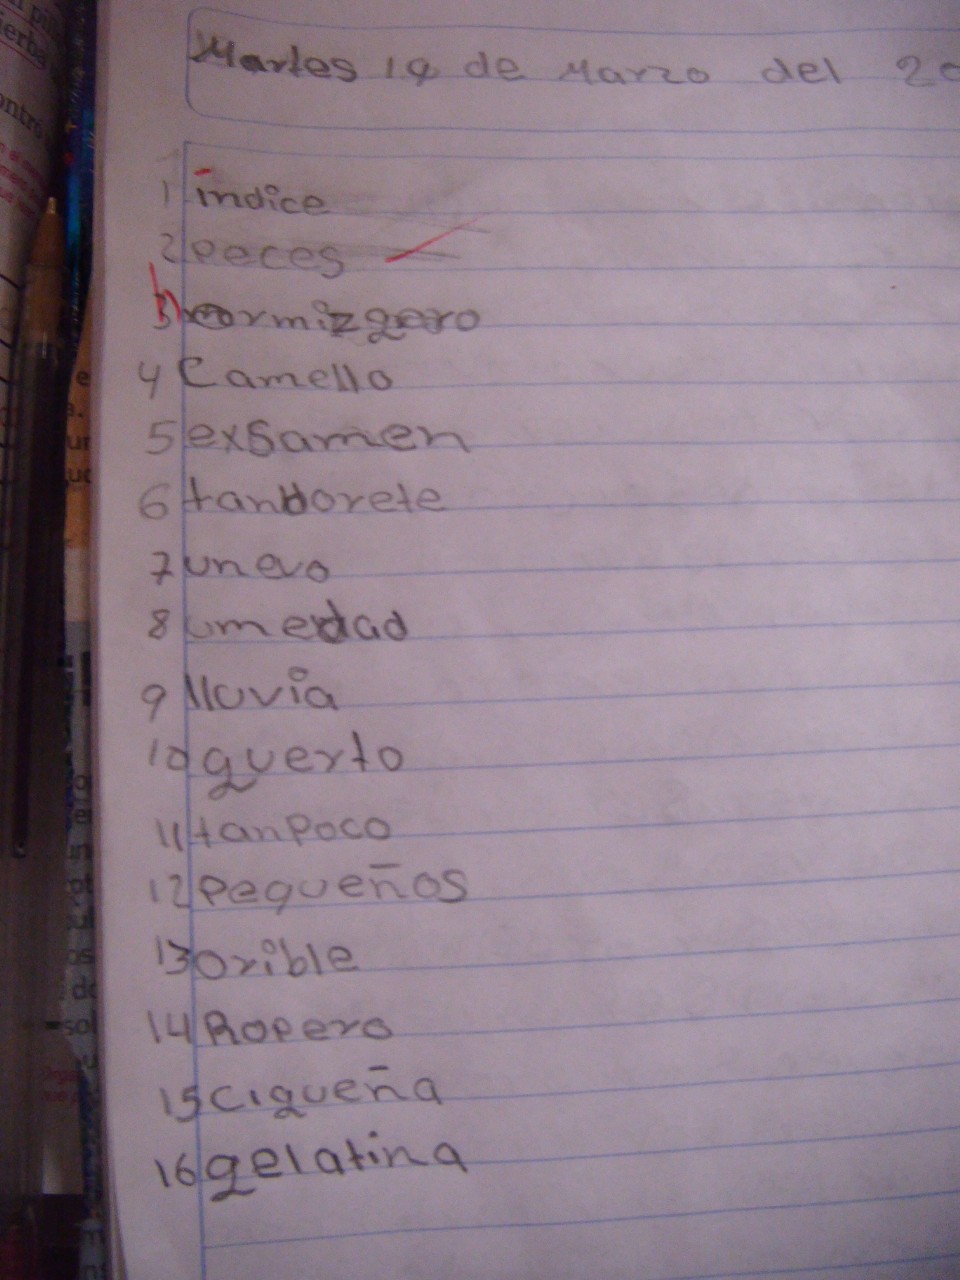 Martes 19 de Marzo del 20
1 indice
2 peces
3 hormizgero
4 Camello
5 exsamen
6 tanborete
7 unevo
8 umedad
9 lluvia
10 querto
11 tanpoco
12 pequeños
13 orible
14 Ropero
15 cigueña
16 gelatina